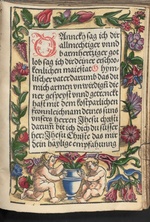 Danneck sag ich dir
allmechtiger vnnd
barmhertziger got
lob sag ich dir deiner
kenlichen maiestat O hym
lischer vater darumb das du
mich armen vnwirdigen sün
ner gespeyst vnnd getrenckt
hast mit dem kostparlichen
fronnleichnam deines suns
vnsers herren Jhesu christi
darum bit ich dich du süsser
her Jhesu Christe das mir
dein haylige empfahung